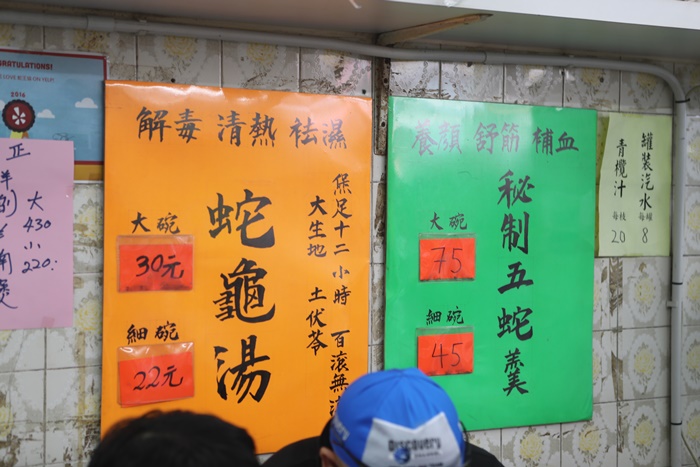 CONGRATULATIONS!
LOVE ON YELP!
2016
正
大
430
小
220.
解毒 清熱 袪濕
保足十二小時 百滾無
大生地 土伏苓
蛇龜湯
大碗
30元
細碗
22元
養顏 舒筋 補血
秘制五蛇羹
大碗
75
細碗
45
罐裝汽水 每罐 8
青欖汁 每枝 20
Discovery